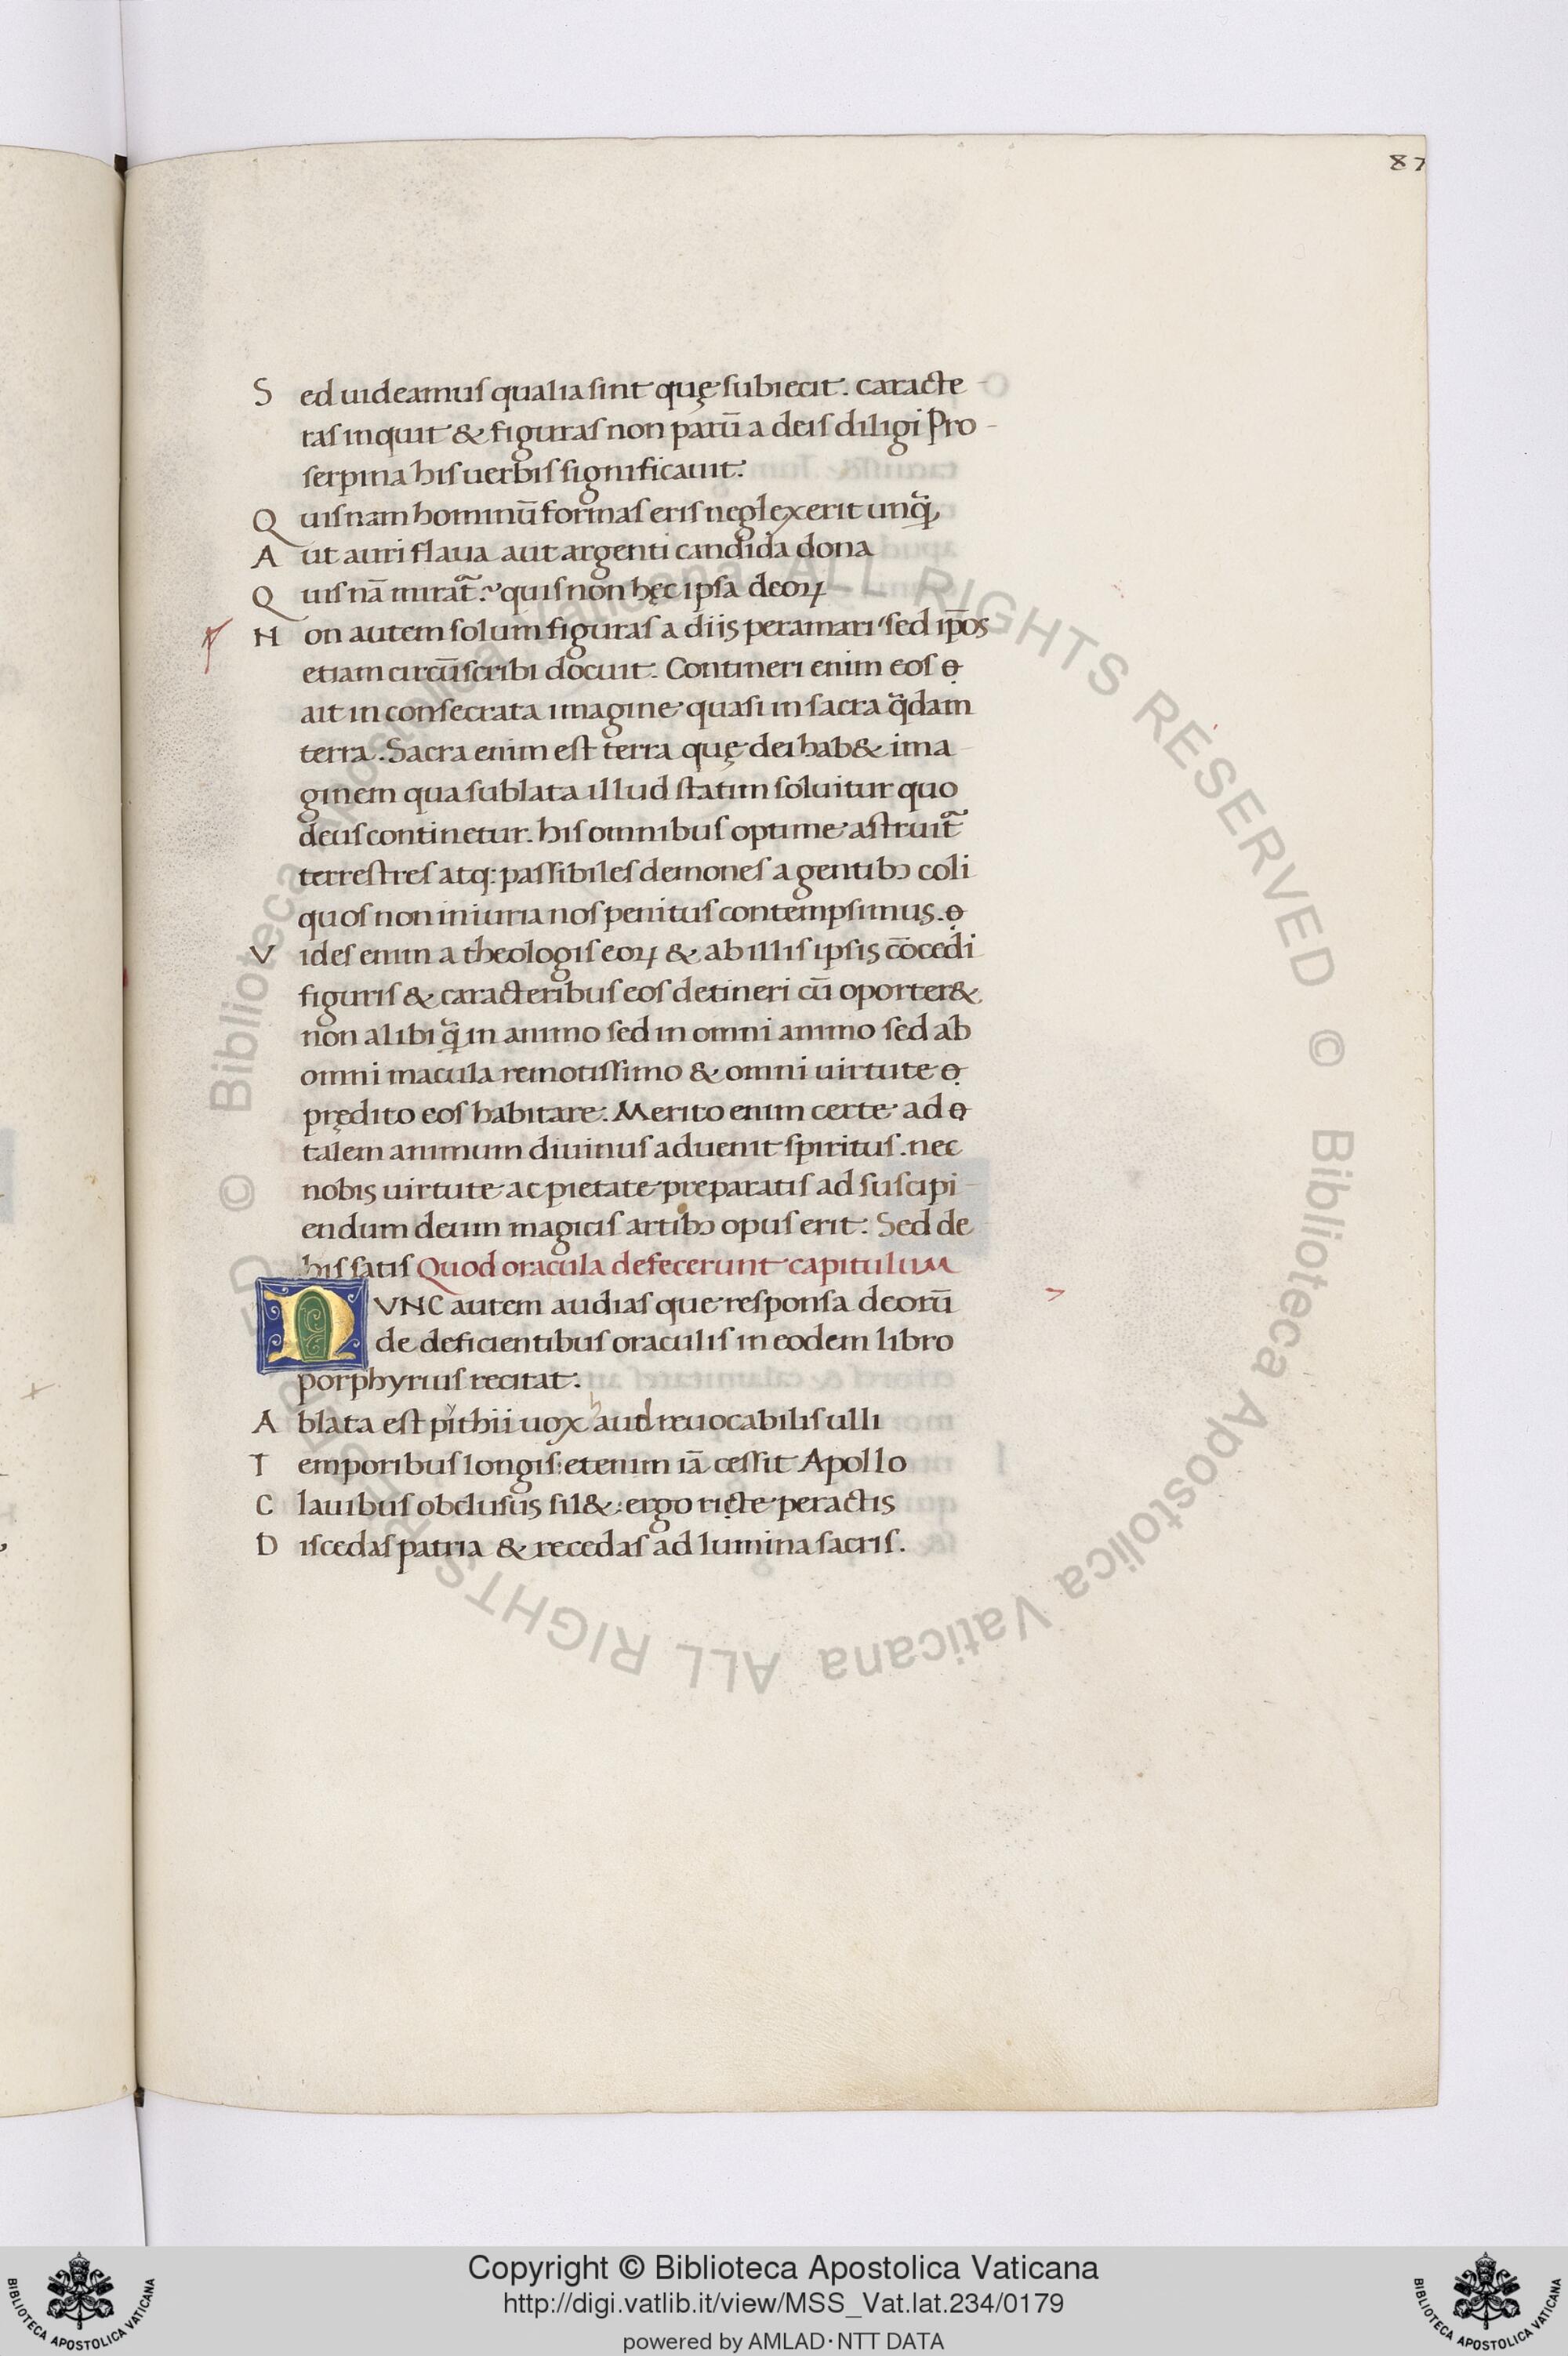 87
Sed uideamus qualia sint quę subiecit. caracte
ras inquit & figuras non parū a deis diligi Pro-
serpina his uerbis significauit.
Quis nam hominū formas eris neglexerit unq̃
Aut auri flaua aut argenti candida dona
Quis nā mirat̃? quis non hęc ipsa deoꝝ
Non autem solum figuras a diis peramari sed ip̄os
etiam circūscribi docuit. Contineri enim eos
ait in consecrata imagine quasi in sacra q̃dam
terra. Sacra enim est terra quę dei hab& ima
ginem qua sublata illud statim soluitur quo
deus continetur. his omnibus optime astruit̃
terrestres atq; passibiles demones a gentibꝫ coli
quos non iniuria nos penitus contempsimus.
Vides enim a theologis eoꝝ & ab illis ipsis cōcedi
figuris & caracteribus eos detineri cū oporter&
non alibi q̃ in animo sed in omni animo sed ab
omni macula remotissimo & omni uirtute
prędito eos habitare. Merito enim certe ad
talem animum diuinus aduenit spiritus. nec
nobis uirtute ac pietate preparatis ad suscipi
endum deum magicis artibꝫ opus erit. Sed de
his satis Quod oracula defecerunt capitulum
NVNC autem audias que responsa deorū
de deficientibus oraculis in eodem libro
porphyrius recitat.
Ablata est pithii uox haud reuocabilis ulli
Temporibus longis: etenim iā cessit Apollo
Clauibus obclusus sil&: ergo ricte peractis
Discedas patria & recedas ad lumina sacris.
© Biblioteca Apostolica Vaticana ALL RIGHTS RESERVED © Biblioteca Apostolica Vaticana ALL RIGHTS
Copyright © Biblioteca Apostolica Vaticana
http://digi.vatlib.it/view/MSS_Vat.lat.234/0179
powered by AMLAD·NTT DATA
BIBLIOTECA APOSTOLICA VATICANA
BIBLIOTECA APOSTOLICA VATICANA